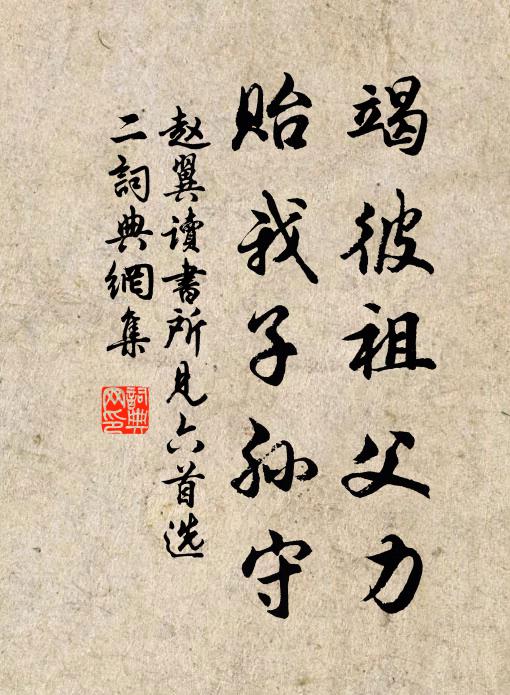 竭彼祖父力
贻我子孙守
赵翼读书所见六首选
二词典网集
詞典网印